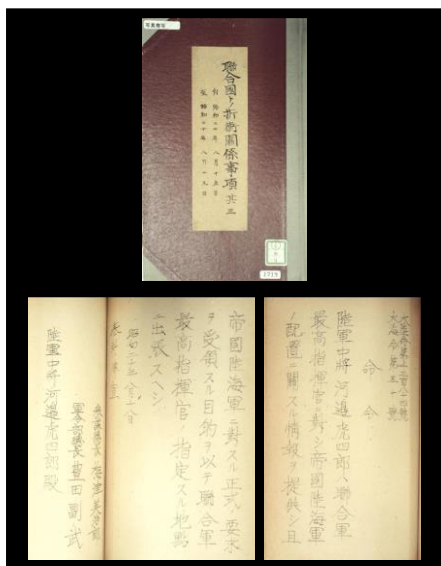 聯合國トノ折衝關係事項 其三
自 昭和二十年 八月十五日
至 昭和二十年
1719
命令
陸軍中將河邊虎四郎ハ聯合軍
最高指揮官ニ對シ帝國陸海軍
ノ配置ニ關スル情報ヲ提供シ且
帝國陸海軍ニ對スル正式ノ要求
ヲ受領スル目的ヲ以テ聯合軍
最高指揮官ノ指定スル地點
ニ出張スヘシ
參謀總長 梅津美治郎
軍令部總長 豊田副武
陸軍中將 河邊虎四郎殿